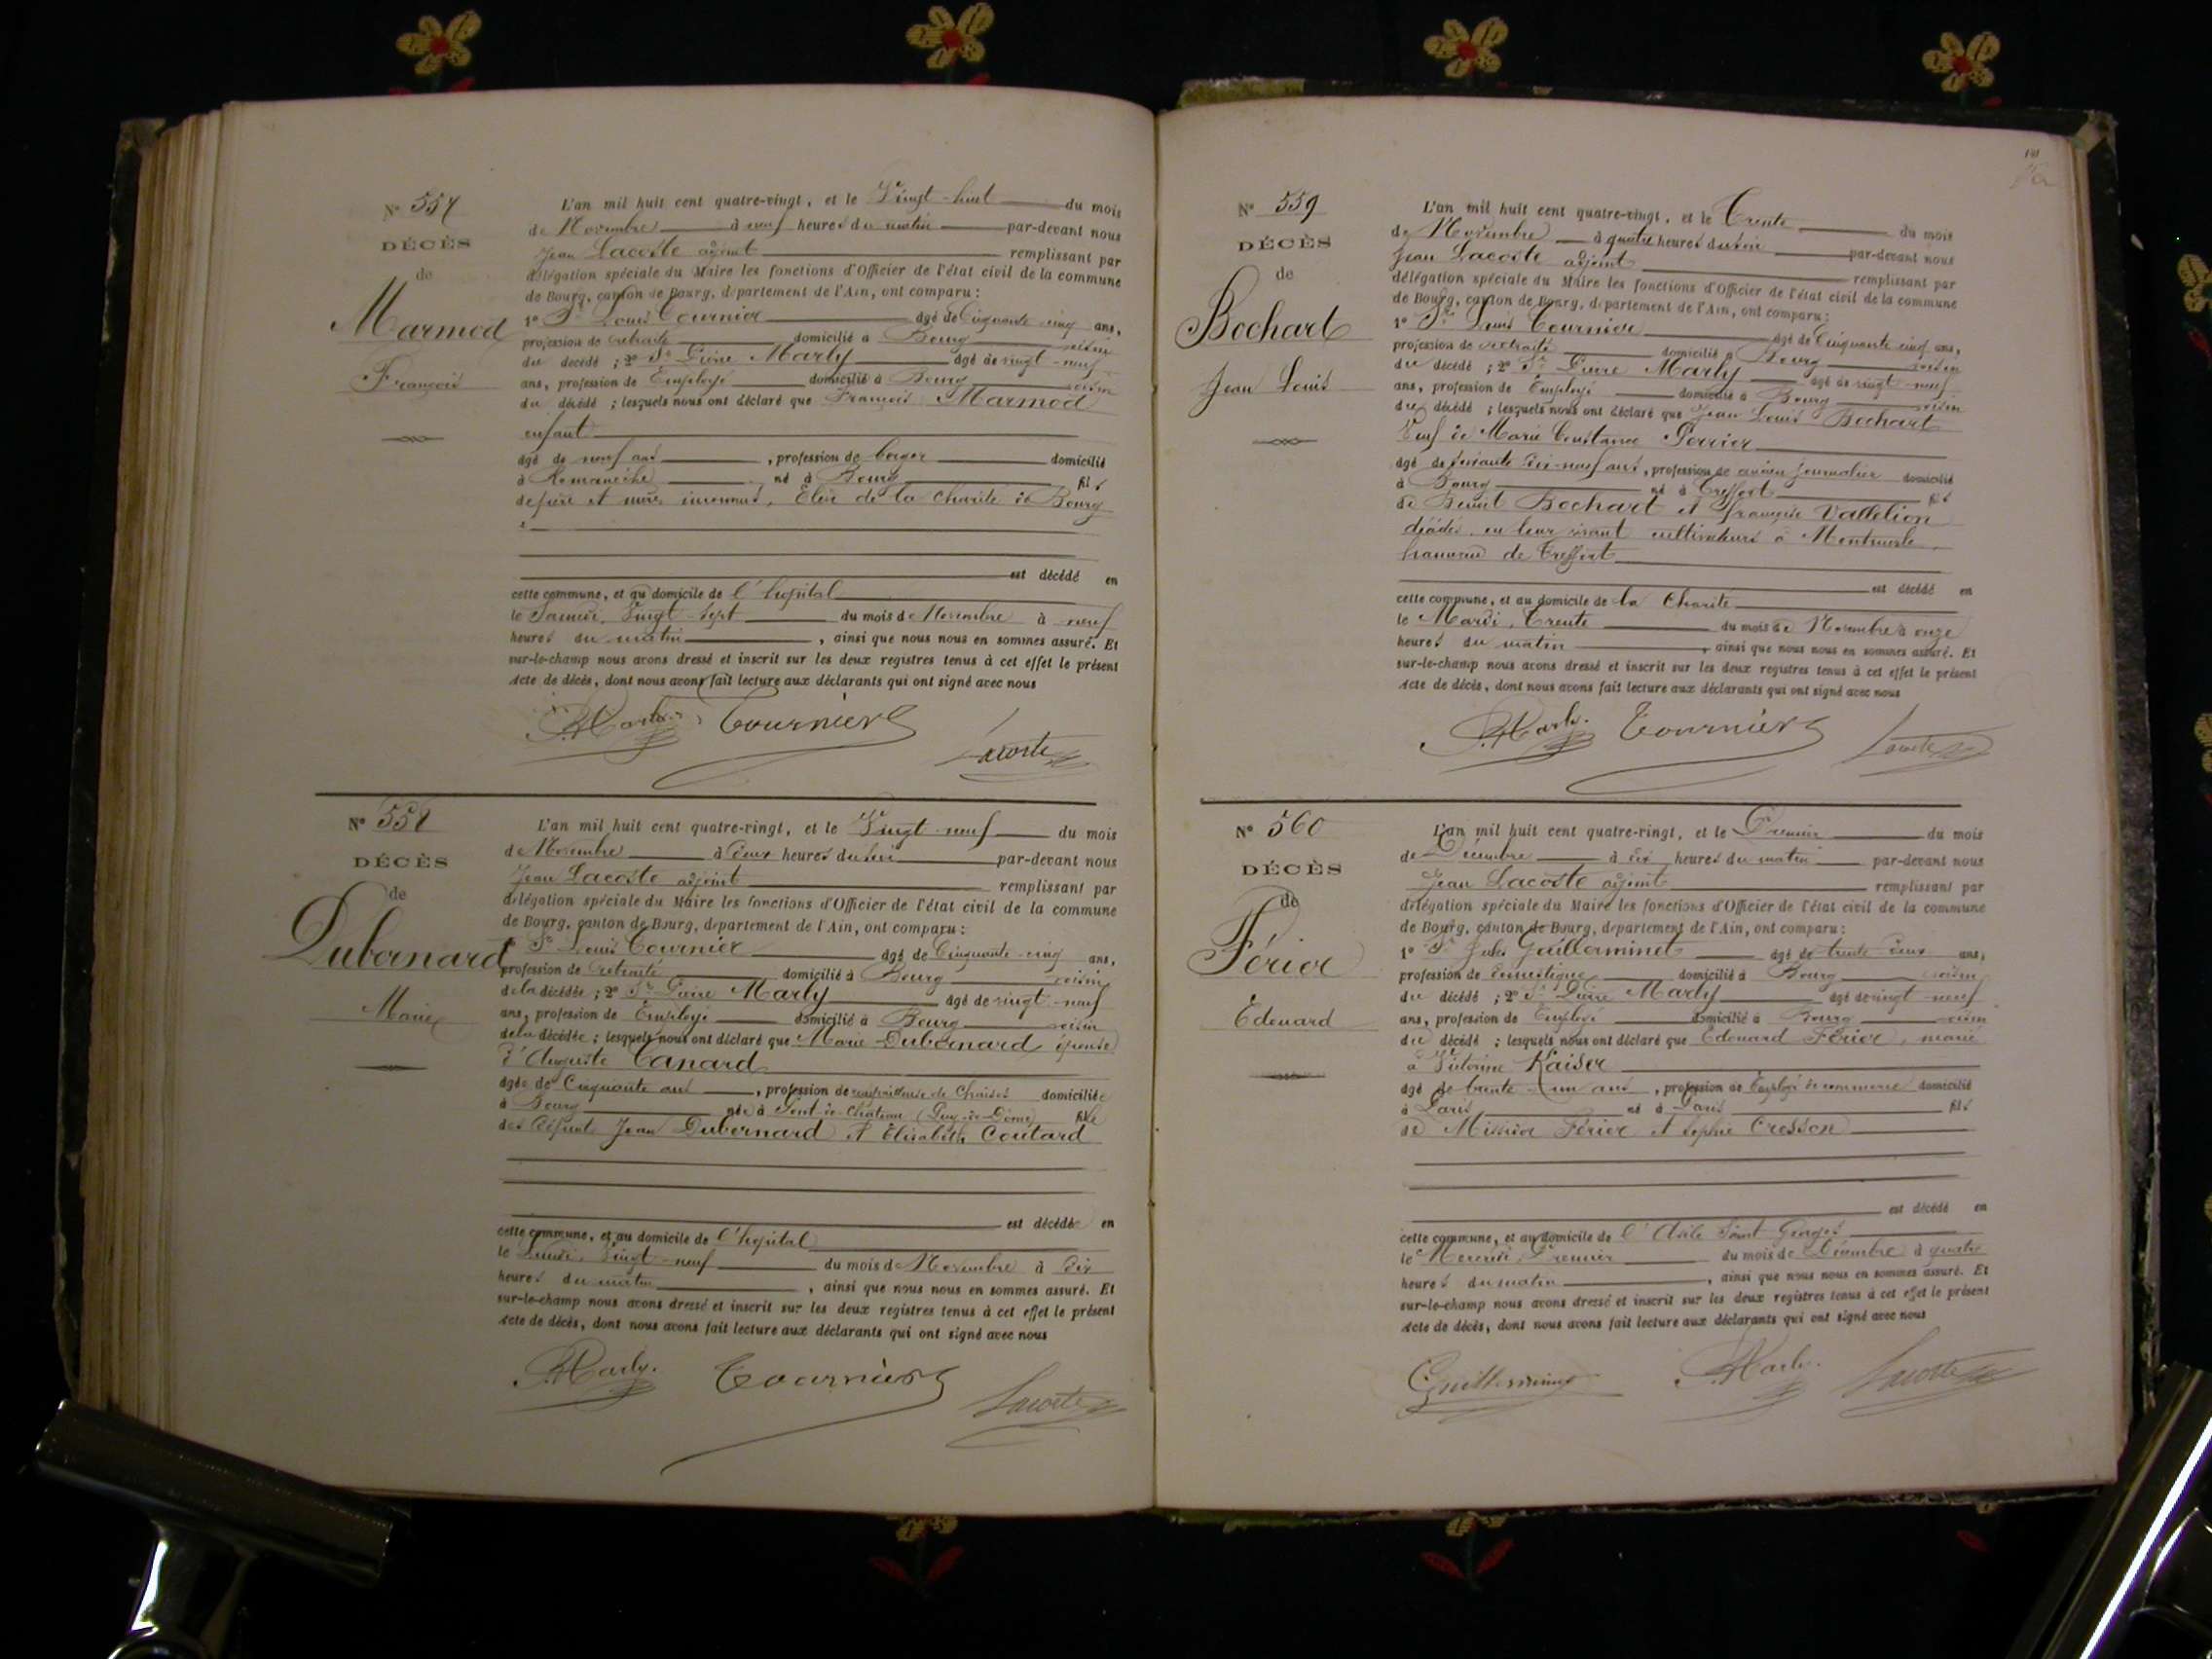 N° 557
DÉCÈS
de
Marmod
François
L'an mil huit cent quatre-vingt, et le Vingt-huit du mois
de Novembre à neuf heures du matin par-devant nous
Jean Lacoste adjoint remplissant par
délégation spéciale du Maire les fonctions d'Officier de l'état civil de la commune
de Bourg, canton de Bourg, département de l'Ain, ont comparu :
1° Sr Louis Tournier âgé de Cinquante-cinq ans,
profession de retraité domicilié à Bourg voisin
du décédé ; 2° Sr Pierre Marly âgé de vingt-neuf
ans, profession de Employé domicilié à Bourg voisin
du décédé ; lesquels nous ont déclaré que François Marmod
enfant
âgé de neuf ans, profession de berger domicilié
à Romanèche né à Bourg fils
de père et mère inconnus, Elève de la Charité de Bourg
est décédé en
cette commune, et au domicile de l'hopital
le Samedi, Vingt-sept du mois de Novembre à neuf
heures du matin, ainsi que nous nous en sommes assuré. Et
sur-le-champ nous avons dressé et inscrit sur les deux registres tenus à cet effet le présent
acte de décès, dont nous avons fait lecture aux déclarants qui ont signé avec nous
P. Marly Tournier Lacoste
N° 558
DÉCÈS
de
Dubernard
Marie
L'an mil huit cent quatre-vingt, et le Vingt-neuf du mois
de Novembre à deux heures du soir par-devant nous
Jean Lacoste adjoint remplissant par
délégation spéciale du Maire les fonctions d'Officier de l'état civil de la commune
de Bourg, canton de Bourg, département de l'Ain, ont comparu :
1° Sr Louis Tournier âgé de Cinquante-cinq ans,
profession de retraité domicilié à Bourg voisin
de la décédée ; 2° Sr Pierre Marly âgé de vingt-neuf
ans, profession de Employé domicilié à Bourg voisin
de la décédée ; lesquels nous ont déclaré que Marie Dubernard épouse
d'Auguste Canard
âgée de Cinquante ans, profession de rempailleuse de Chaises domiciliée
à Bourg née à Pont-de-Château (Puy-de-Dôme) fille
des défunts Jean Dubernard et Elisabeth Coutard
est décédée en
cette commune, et au domicile de l'hopital
le Lundi, Vingt-neuf du mois de Novembre à dix
heures du matin, ainsi que nous nous en sommes assuré. Et
sur-le-champ nous avons dressé et inscrit sur les deux registres tenus à cet effet le présent
acte de décès, dont nous avons fait lecture aux déclarants qui ont signé avec nous
P. Marly. Tournier Lacoste
N° 559
DÉCÈS
de
Bochart
Jean Louis
L'an mil huit cent quatre-vingt, et le Trente du mois
de Novembre à quatre heures du soir par-devant nous
Jean Lacoste adjoint remplissant par
délégation spéciale du Maire les fonctions d'Officier de l'état civil de la commune
de Bourg, canton de Bourg, département de l'Ain, ont comparu :
1° Sr Louis Tournier âgé de Cinquante-cinq ans,
profession de retraité domicilié à Bourg voisin
du décédé ; 2° Sr Pierre Marly âgé de vingt-neuf
ans, profession de Employé domicilié à Bourg voisin
du décédé ; lesquels nous ont déclaré que Jean Louis Bochart
Veuf de Marie Constance Perrier
âgé de soixante dix-neuf ans, profession de ancien journalier domicilié
à Bourg né à Treffort fils
de Benoit Bochart et Françoise Vallelion
décédés, en leur vivant cultivateurs à Montmerle
hameau de Treffort
est décédé en
cette commune, et au domicile de la Charité
le Mardi, Trente du mois de Novembre à onze
heures du matin, ainsi que nous nous en sommes assuré. Et
sur-le-champ nous avons dressé et inscrit sur les deux registres tenus à cet effet le présent
acte de décès, dont nous avons fait lecture aux déclarants qui ont signé avec nous
P. Marly. Tournier Lacoste
N° 560
DÉCÈS
de
Férier
Edouard
L'an mil huit cent quatre-vingt, et le Premier du mois
de Décembre à dix heures du matin par-devant nous
Jean Lacoste adjoint remplissant par
délégation spéciale du Maire les fonctions d'Officier de l'état civil de la commune
de Bourg, canton de Bourg, département de l'Ain, ont comparu :
1° Sr Jules Guillerminet âgé de trente-deux ans,
profession de domestique domicilié à Bourg voisin
du décédé ; 2° Sr Pierre Marly âgé de vingt-neuf
ans, profession de Employé domicilié à Bourg voisin
du décédé ; lesquels nous ont déclaré que Edouard Férier, marié
à Victorine Kaiser
âgé de trente-un ans, profession de Employé de commerce domicilié
à Paris né à Paris fils
de Férier et Sophie Cresson
est décédé en
cette commune, et au domicile de l'Asile Saint Georges
le Mercredi, Premier du mois de Décembre à quatre
heures du matin, ainsi que nous nous en sommes assuré. Et
sur-le-champ nous avons dressé et inscrit sur les deux registres tenus à cet effet le présent
acte de décès, dont nous avons fait lecture aux déclarants qui ont signé avec nous
Guillerminet P. Marly. Lacoste